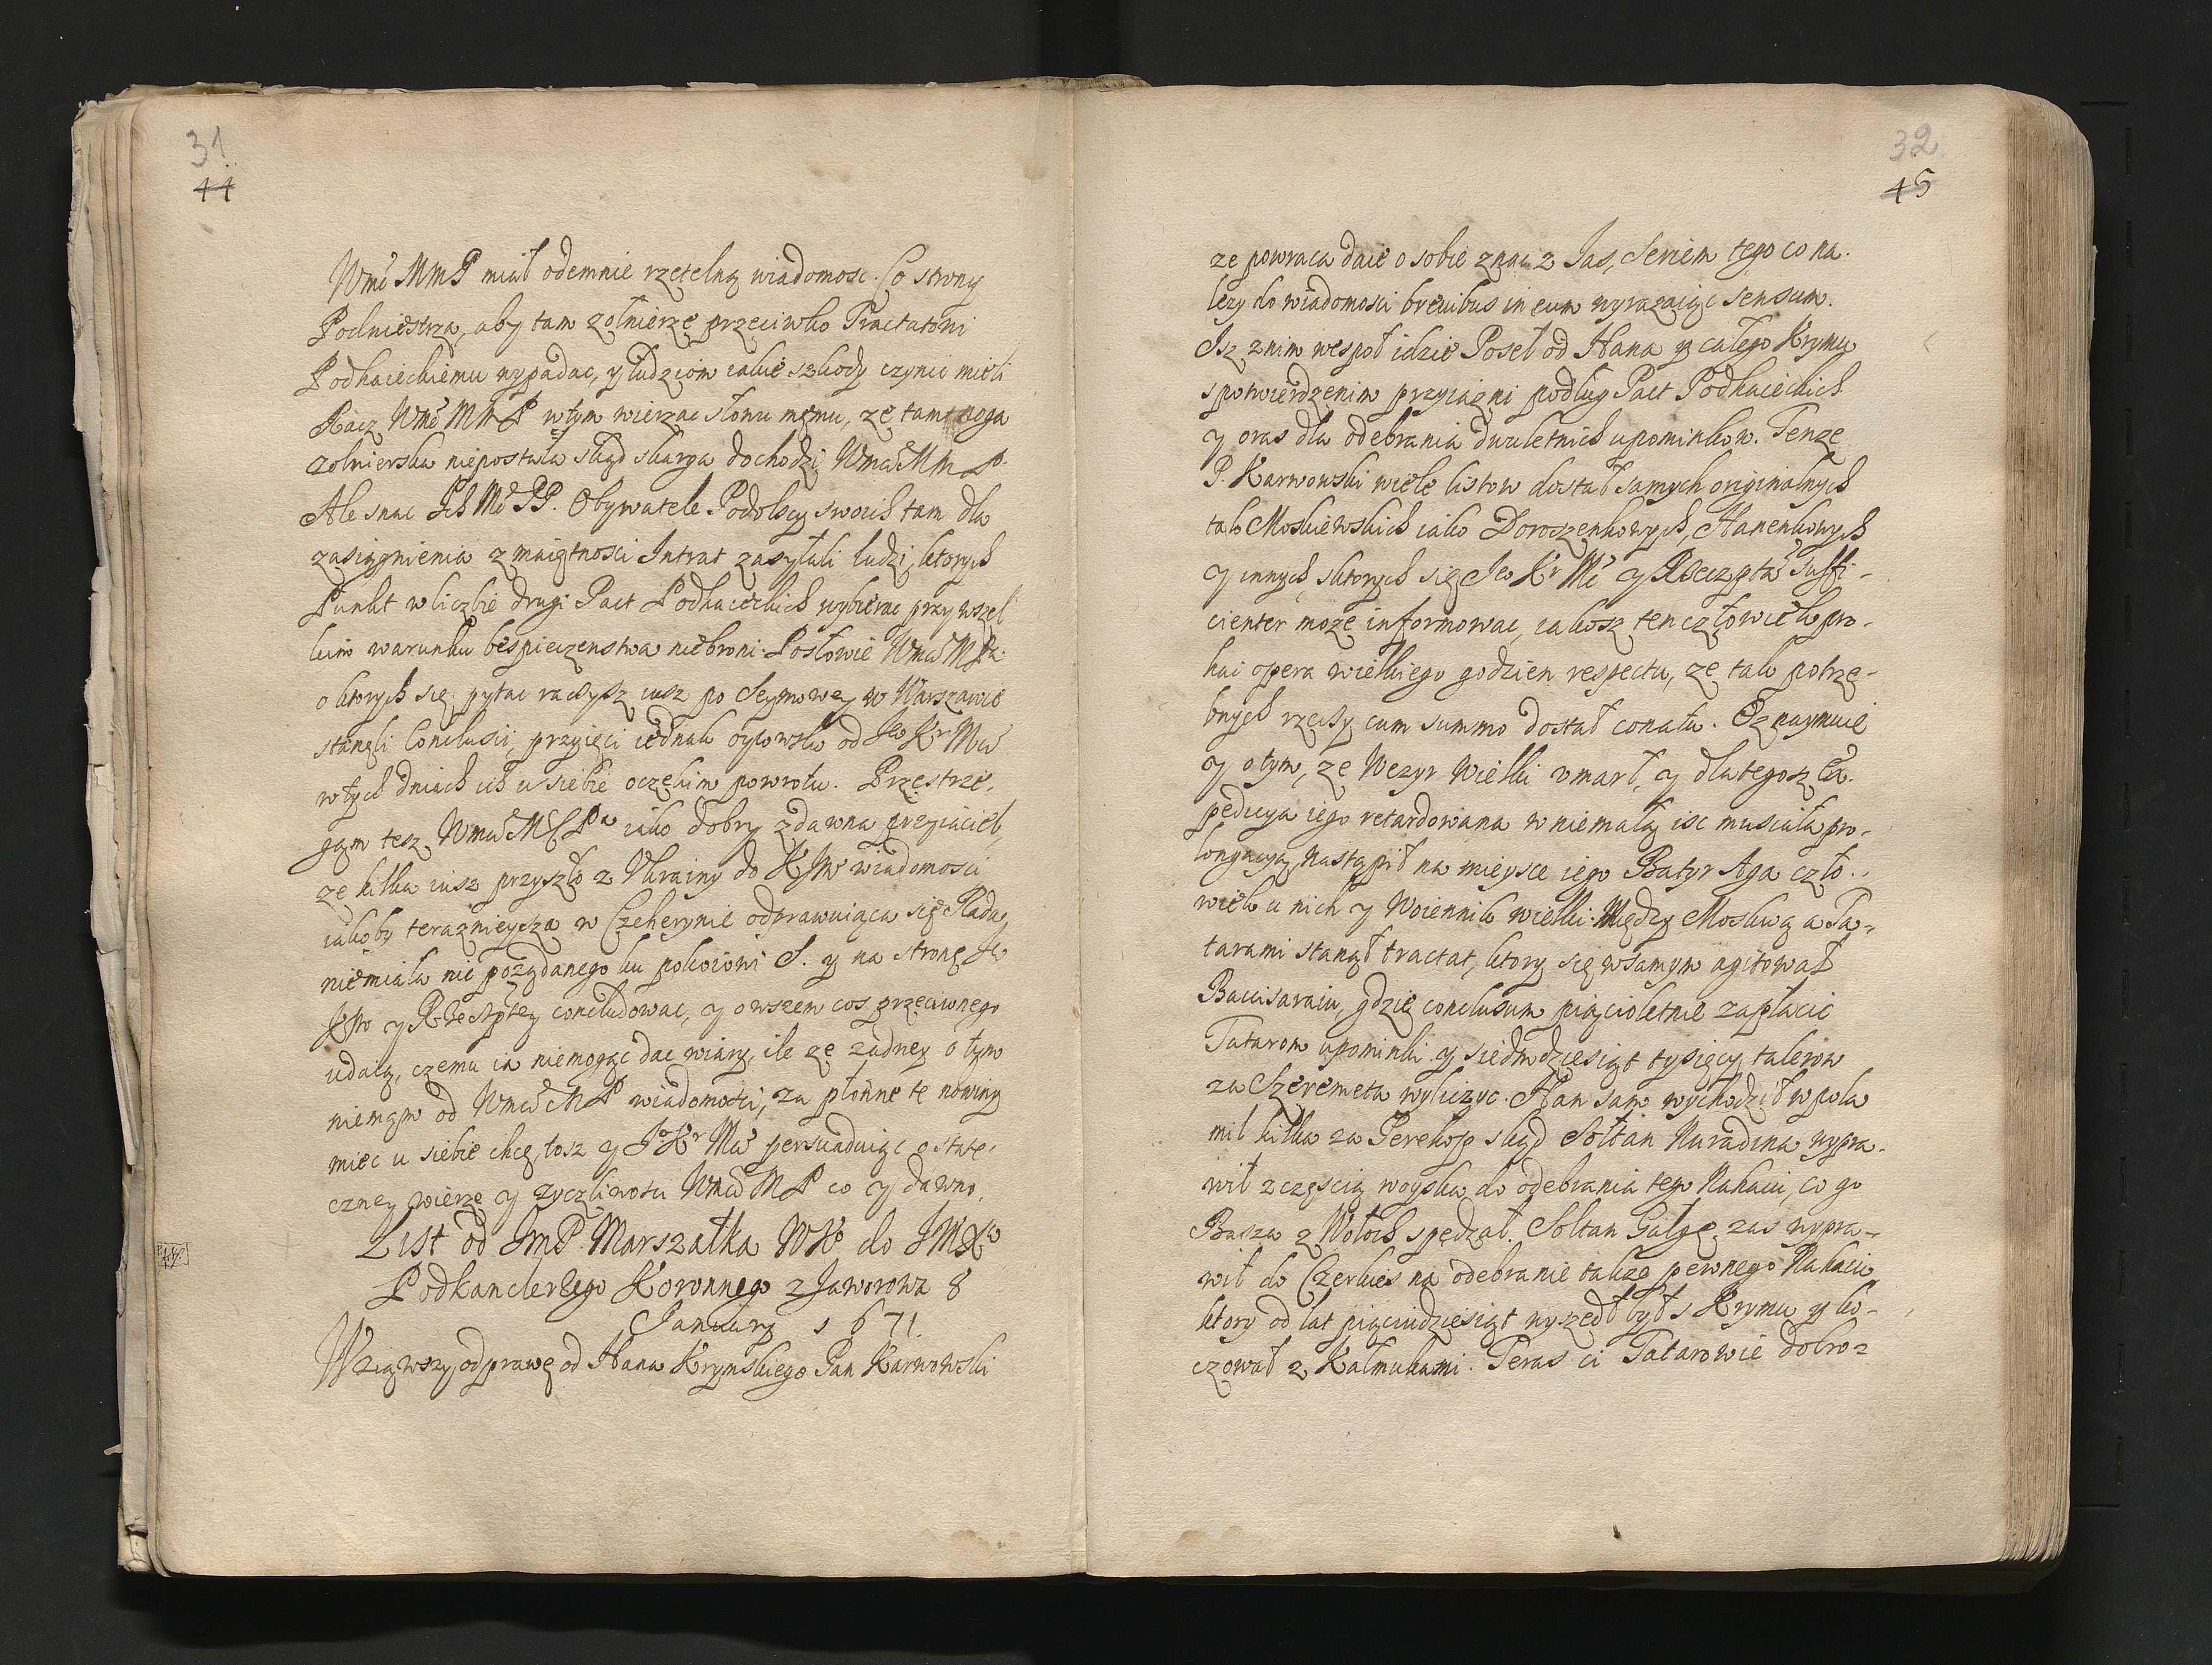 31
44
Wmć MmP miał odemnie rzetelną wiadomosc. Co strony
Podniestrza, aby tam zołnierze przeciwko Tractatowi
Podhaieckiemu wypadac, y ludziom iakie szkody czynic mieli
Racz Wmć MmP w tym wierzac słowu memu, ze tam noga
zolnierska niepostała skąd skarga dochodzi Wmći MmP.
Ale snac Ich Mć PP. Obywatele Podolscy swoich tam dla
zasiągnienia z maiętnosci Intrat zasyłali ludzi, ktorych
Punkt w liczbie drugi Pact Podhaieckich wybierac przy wszel
kim warunku bespieczenstwa niebroni. Posłowie Wmći MPa.
o ktorych się pytac raczysz iusz po Seymowey w Warszawie
stanęli Conclusii, przyięci iednak oycowsko od Je Kr Mći
w tych dniach ich u siebie oczekiw powrotu. Przestrze,
gam tesz Wmći MPa iako dobry zdawna przyiaciel,
ze kilka iusz przyszło z Ukrainy do KJM wiadomosci
iakoby teraznieysza w Czeherynie odprawuiąca się Rada,
niemiała nic pożądanego ku pokoiowi S. y na stronę Je
KM y Rzeczptey concludowac, y owszem cos przeciwnego
udaią, czemu ia niemogąc dac wiary, ile ze zadney o tym
niemąm od Wmći MP wiadomosci, za płonne te nowiny
miec u siebie chcę, tosz y Jo Kr Mći persuaduiąc o state,
czney wierze y zyczliwosci Wmći MP co y dawno.
List od JmP. Marszałka WKo do JMXa
Podkanclerzego Koronnego z Jaworowa 8
January 1671.
Wziąwszy odprawę od Hana Krymskiego Pan Karwowski
32
45
ze powraca daie o sobie znac z Jas, Seriem tego co na.
lezy do wiadomosci breuibus in eum wyrazaiąc sensum.
Isz znim wespoł idzie Poseł od Hana y całego Krymu
s potwierdzenim przyiazni podług Pact Podhaieckich
y oras dla odebrania dwuletnich upominkow. Tenze
P. Karwowski wiele listow dostał samych originalnych
tak Moskiewskich iako Doroszenkowych, Hanenkowych
y innych, sktorych się Jeo Kr Mć y Rzeczpta suffi-
cienter moze informowac, iakosz ten człowiek pro-
hac opera wielkiego godzien respectu, ze tak potrze-
bnych rzeczy cum summo dostał conatu. Oznaymuie
y o tym, ze Wezyr Wielki umarł, y dlategosz Ex.
pedicya iego retardowana w niemałą isc musiała pro-
longacyą, nastąpił na mieysce iego Batyr Aga czło-
wiek u nich y Woiennik wielki. Między Moskwą a Ta-
tarami stanął tractat, ktory się w samym agitował
Baccisaraiu, gdzie conclusum pięcioletnie zapłacic
Tatarom upominki y siedmdziesiąt tysięcy talerow
za Szeremeta wyliczyc. Han sam wychodził w pola
mil kilka za Perekop skąd Sołtan Nuradina wypra-
wił z częscią woyska do odebrania tego Nahaiu, co go
Basza z Wołoch spędzał. Sołtan Gałgę zas wypra-
wił do Czerkies na odebranie takze pewnego Nahaiu
ktory od lat pięciudziesiąt wyszedł był s Krymu y ko-
czował z Kałmukami. Teras ci Tatarowie dobro=